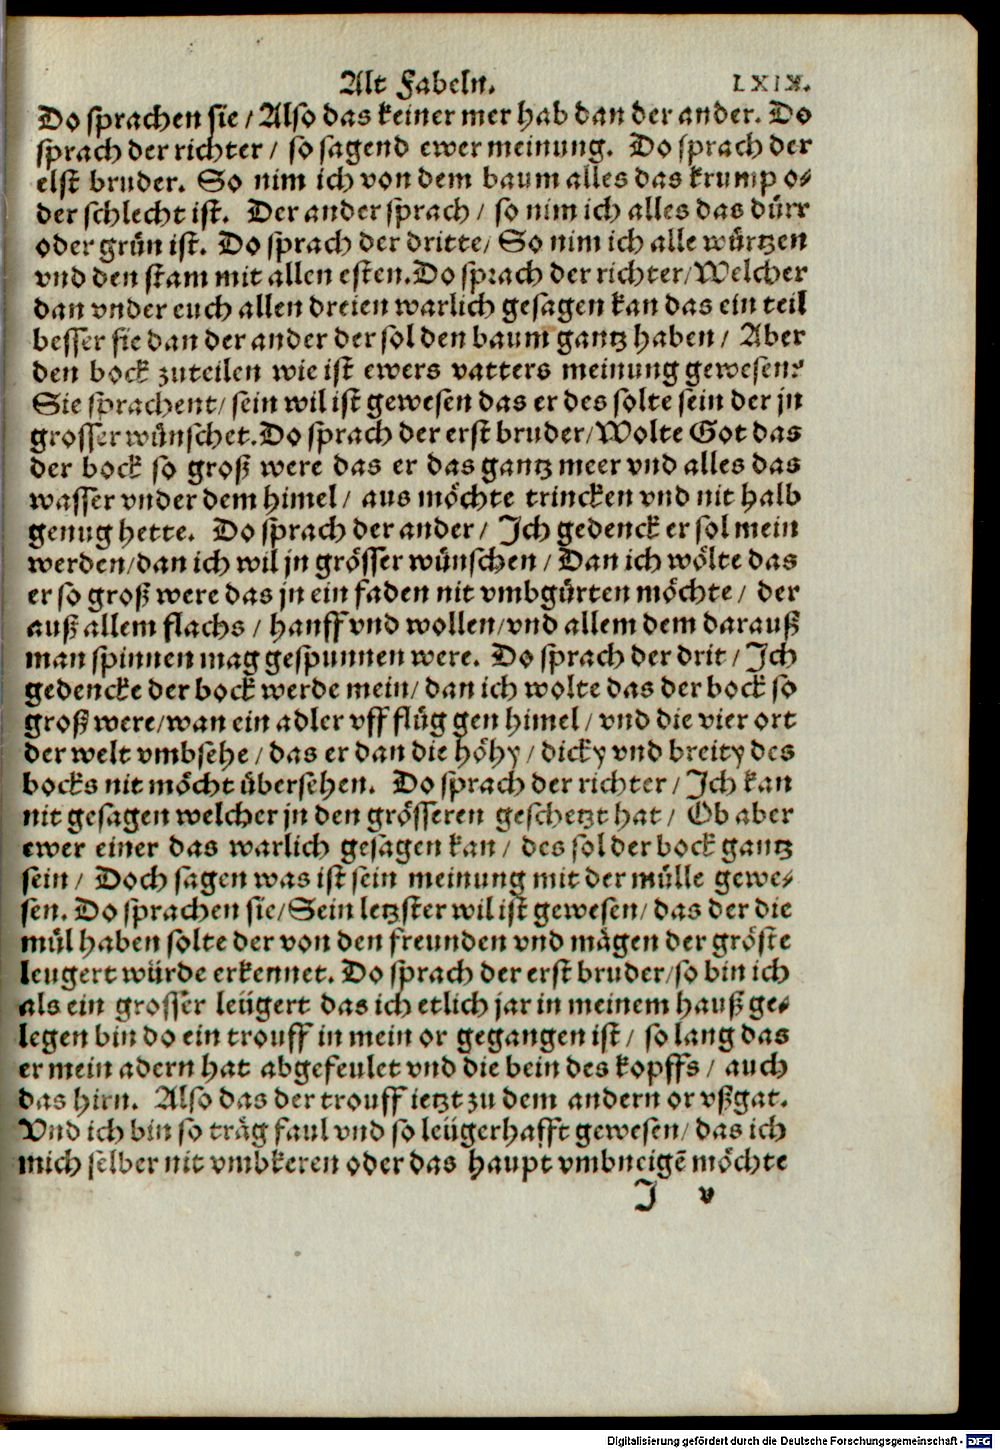 Alt Fabeln. LXIX.
Do sprachen sie / Also das keiner mer hab dan der ander. Do
sprach der richter / so sagend ewer meinung. Do sprach der
elst bruder. So nim ich von dem baum alles das krump o⸗
der schlecht ist. Der ander sprach / so nim ich alles das dürr
oder grün ist. Do sprach der dritte / So nim ich alle würtzen
vnd den stam mit allen esten. Do sprach der richter / Welcher
dan vnder euch allen dreien warlich gesagen kan das ein teil
besser sie dan der ander der sol den baum gantz haben / Aber
den bock zuteilen wie ist ewers vatters meinung gewesen?
Sie sprachent / sein wil ist gewesen das er des solte sein der jn
grosser wünschet. Do sprach der erst bruder / Wolte Got das
der bock so groß were das er das gantz meer vnd alles das
wasser vnder dem himel / aus möchte trincken vnd nit halb
genug hette. Do sprach der ander / Ich gedenck er sol mein
werden / dan ich wil jn grösser wünschen / Dan ich wölte das
er so groß were das jn ein faden nit vmbgürten möchte / der
auß allem flachs / hanff vnd wollen / vnd allem dem darauß
man spinnen mag gespunnen were. Do sprach der drit / Ich
gedencke der bock werde mein / dan ich wolte das der bock so
groß were / wan ein adler vff flüg gen himel / vnd die vier ort
der welt vmbsehe / das er dan die höhy / dicky vnd breity des
bocks nit möcht übersehen. Do sprach der richter / Ich kan
nit gesagen welcher jn den grösseren geschetzt hat / Ob aber
ewer einer das warlich gesagen kan / des sol der bock gantz
sein / Doch sagen was ist sein meinung mit der mülle gewe⸗
sen. Do sprachen sie / Sein letzster wil ist gewesen / das der die
mül haben solte der von den freunden vnd mägen der gröste
leugert würde erkennet. Do sprach der erst bruder / so bin ich
als ein grosser leügert das ich etlich jar in meinem hauß ge⸗
legen bin do ein trouff in mein or gegangen ist / so lang das
er mein adern hat abgefeulet vnd die bein des kopffs / auch
das hirn. Also das der trouff ietzt zu dem andern or vßgat.
Vnd ich bin so träg faul vnd so leügerhafft gewesen / das ich
mich selber nit vmbkeren oder das haupt vmbneigē möchte
I v
Digitalisierung gefördert durch die Deutsche Forschungsgemeinschaft - DFG